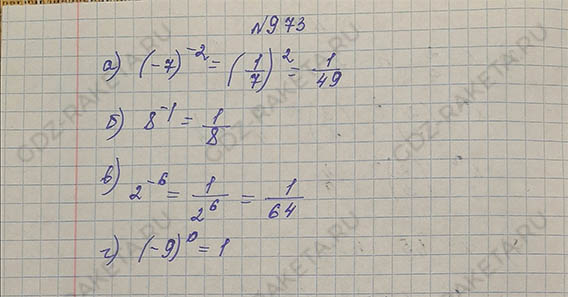 №973
а) (-7)⁻² = (1/7)² = 1/49
б) 8⁻¹ = 1/8
в) 2⁻⁶ = 1/2⁶ = 1/64
г) (-9)⁰ = 1
GDZ-RAKETA.RU
GDZ-RAKETA.RU
GDZ-RAKETA.RU
GDZ-RAKETA.RU